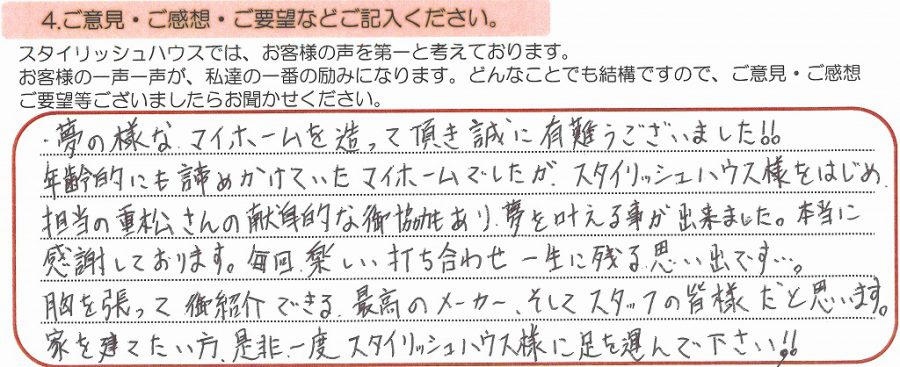 4.ご意見・ご感想・ご要望などご記入ください。
スタイリッシュハウスでは、お客様の声を第一と考えております。
お客様の一声一声が、私達の一番の励みになります。どんなことでも結構ですので、ご意見・ご感想
ご要望等ございましたらお聞かせください。
・夢の様な マイホームを造って頂き誠に有難うございました!!
年齢的にも諦めかけていたマイホームでしたが、スタイリッシュハウス様をはじめ、
担当の重松さんの献身的な御協力もあり、夢を叶える事が出来ました。本当に
感謝しております。毎回、楽しい打ち合わせ一生に残る思い出です…。
胸を張って御紹介できる、最高のメーカー、そしてスタッフの皆様だと思います。
家を建てたい方、是非、一度スタイリッシュハウス様に足を運んで下さい!!